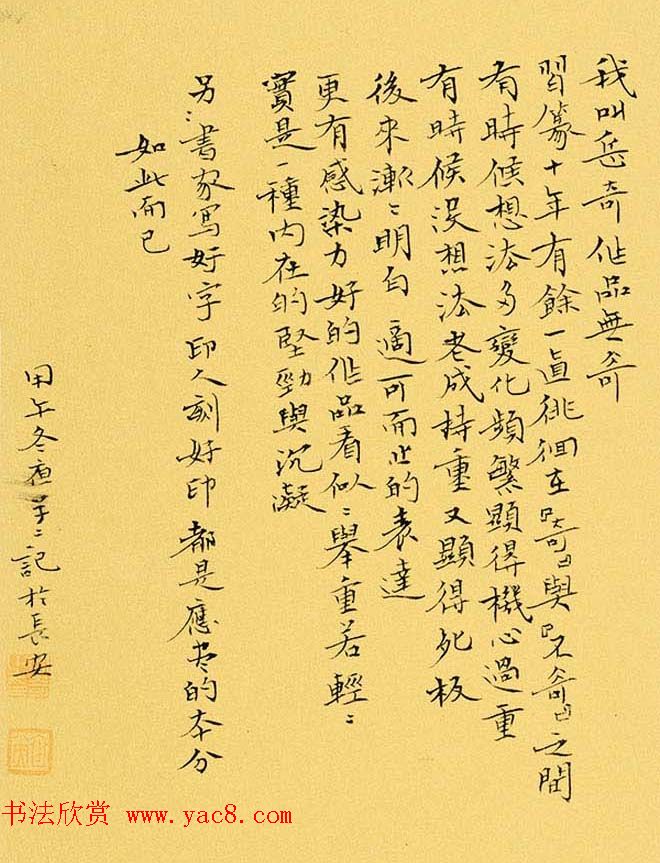 我叫岳奇作品無奇
習篆十年有餘一直徘徊在『奇』與『不奇』之間
有時候想法多變化頻繁顯得機心過重
有時候沒想法老成持重又顯得死板
後來漸〻明白適可而止的表達
更有感染力好的作品看似〻舉重若輕〻
實是一種內在的堅勁與沉凝
另〻書家寫好字印人刻好印都是應盡的本分
如此而已
甲午冬夜草〻記於長安
书法欣赏 www.yac8.com